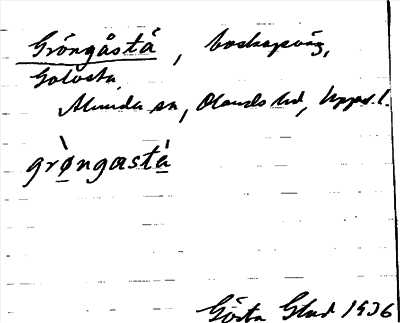 Gröngåstå, boskapsväg,
Golvsta,
Alunda sn, Olands hd, Uppsal. l.
grø̀ngœstà
Gösta Glad 1936